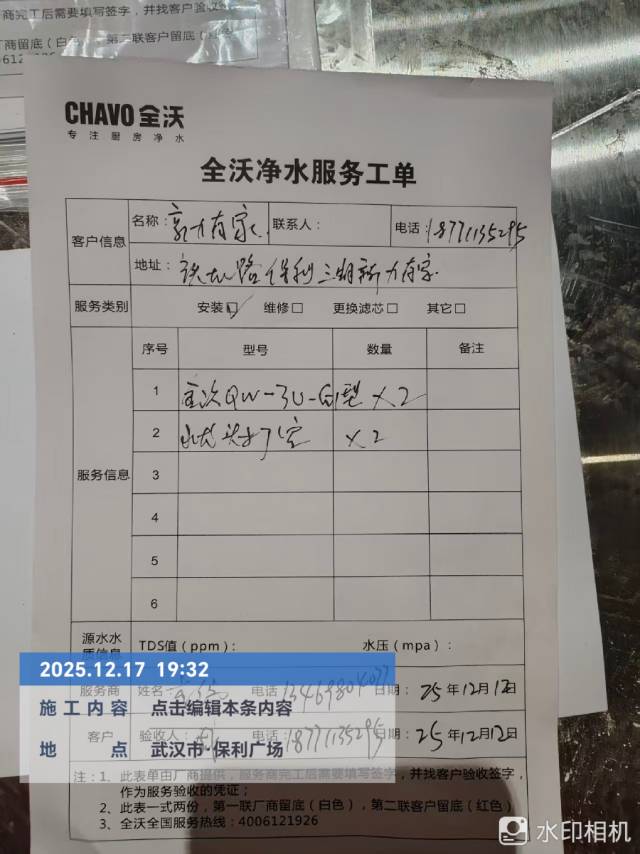 商完工后需要填写签字，并找客户验收
厂商留底（白色），第二联客户留底（红色）
CHAVO全沃
专注厨房净水
全沃净水服务工单
客户信息
名称：郭力有家
联系人：
电话：18771135295
地址：铁机路保利三期新力有家
服务类别
安装☑ 维修□ 更换滤芯□ 其它□
服务信息
序号 型号 数量 备注
1 全沃QW-3U-01型 ×2
2 ×2
3
4
5
6
源水水质信息
TDS值（ppm）： 水压（mpa）：
服务商 姓名： 电话 日期：25年12月12日
客户 验收人： 电话：18771135295 25年12月12日
注：1、此表单由厂商提供，服务商完工后需要填写签字，并找客户验收签字，
作为服务验收的凭证；
2、此表一式两份，第一联厂商留底（白色），第二联客户留底（红色）
3、全沃全国服务热线：4006121926
2025.12.17 19:32
施工内容 点击编辑本条内容
地点 武汉市·保利广场
水印相机